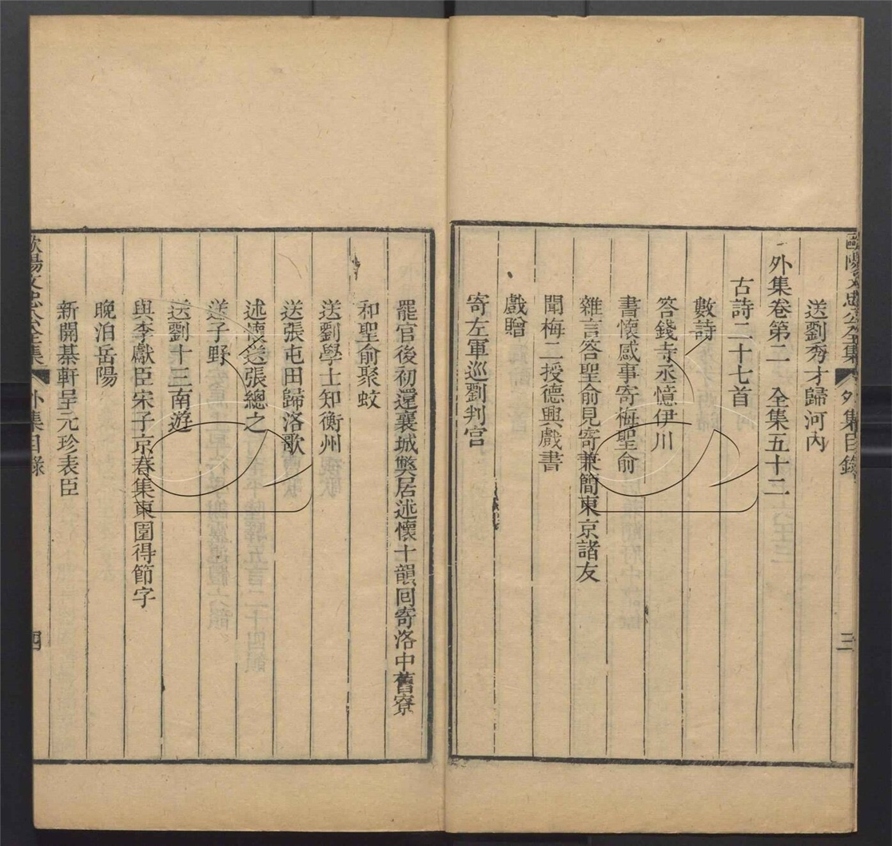 歐陽文忠公全集 外集目錄 三
送劉秀才歸河內
外集卷第二 全集五十二
古詩二十七首
數詩
答錢寺丞憶伊川
書懷感事寄梅聖俞
雜言答聖俞見寄兼簡東京諸友
聞梅二授德興戲書
戲贈
寄左軍巡劉判官
罷官後初還襄城弊居述懷十韻回寄洛中舊寮
和聖俞聚蚊
送劉學士知衡州
送張屯田歸洛歌
述懷送張總之
送子野
送劉十三南遊
與李獻臣宋子京春集東園得節字
晚泊岳陽
新開棊軒呈元珍表臣
歐陽文忠公全集 外集目錄 四